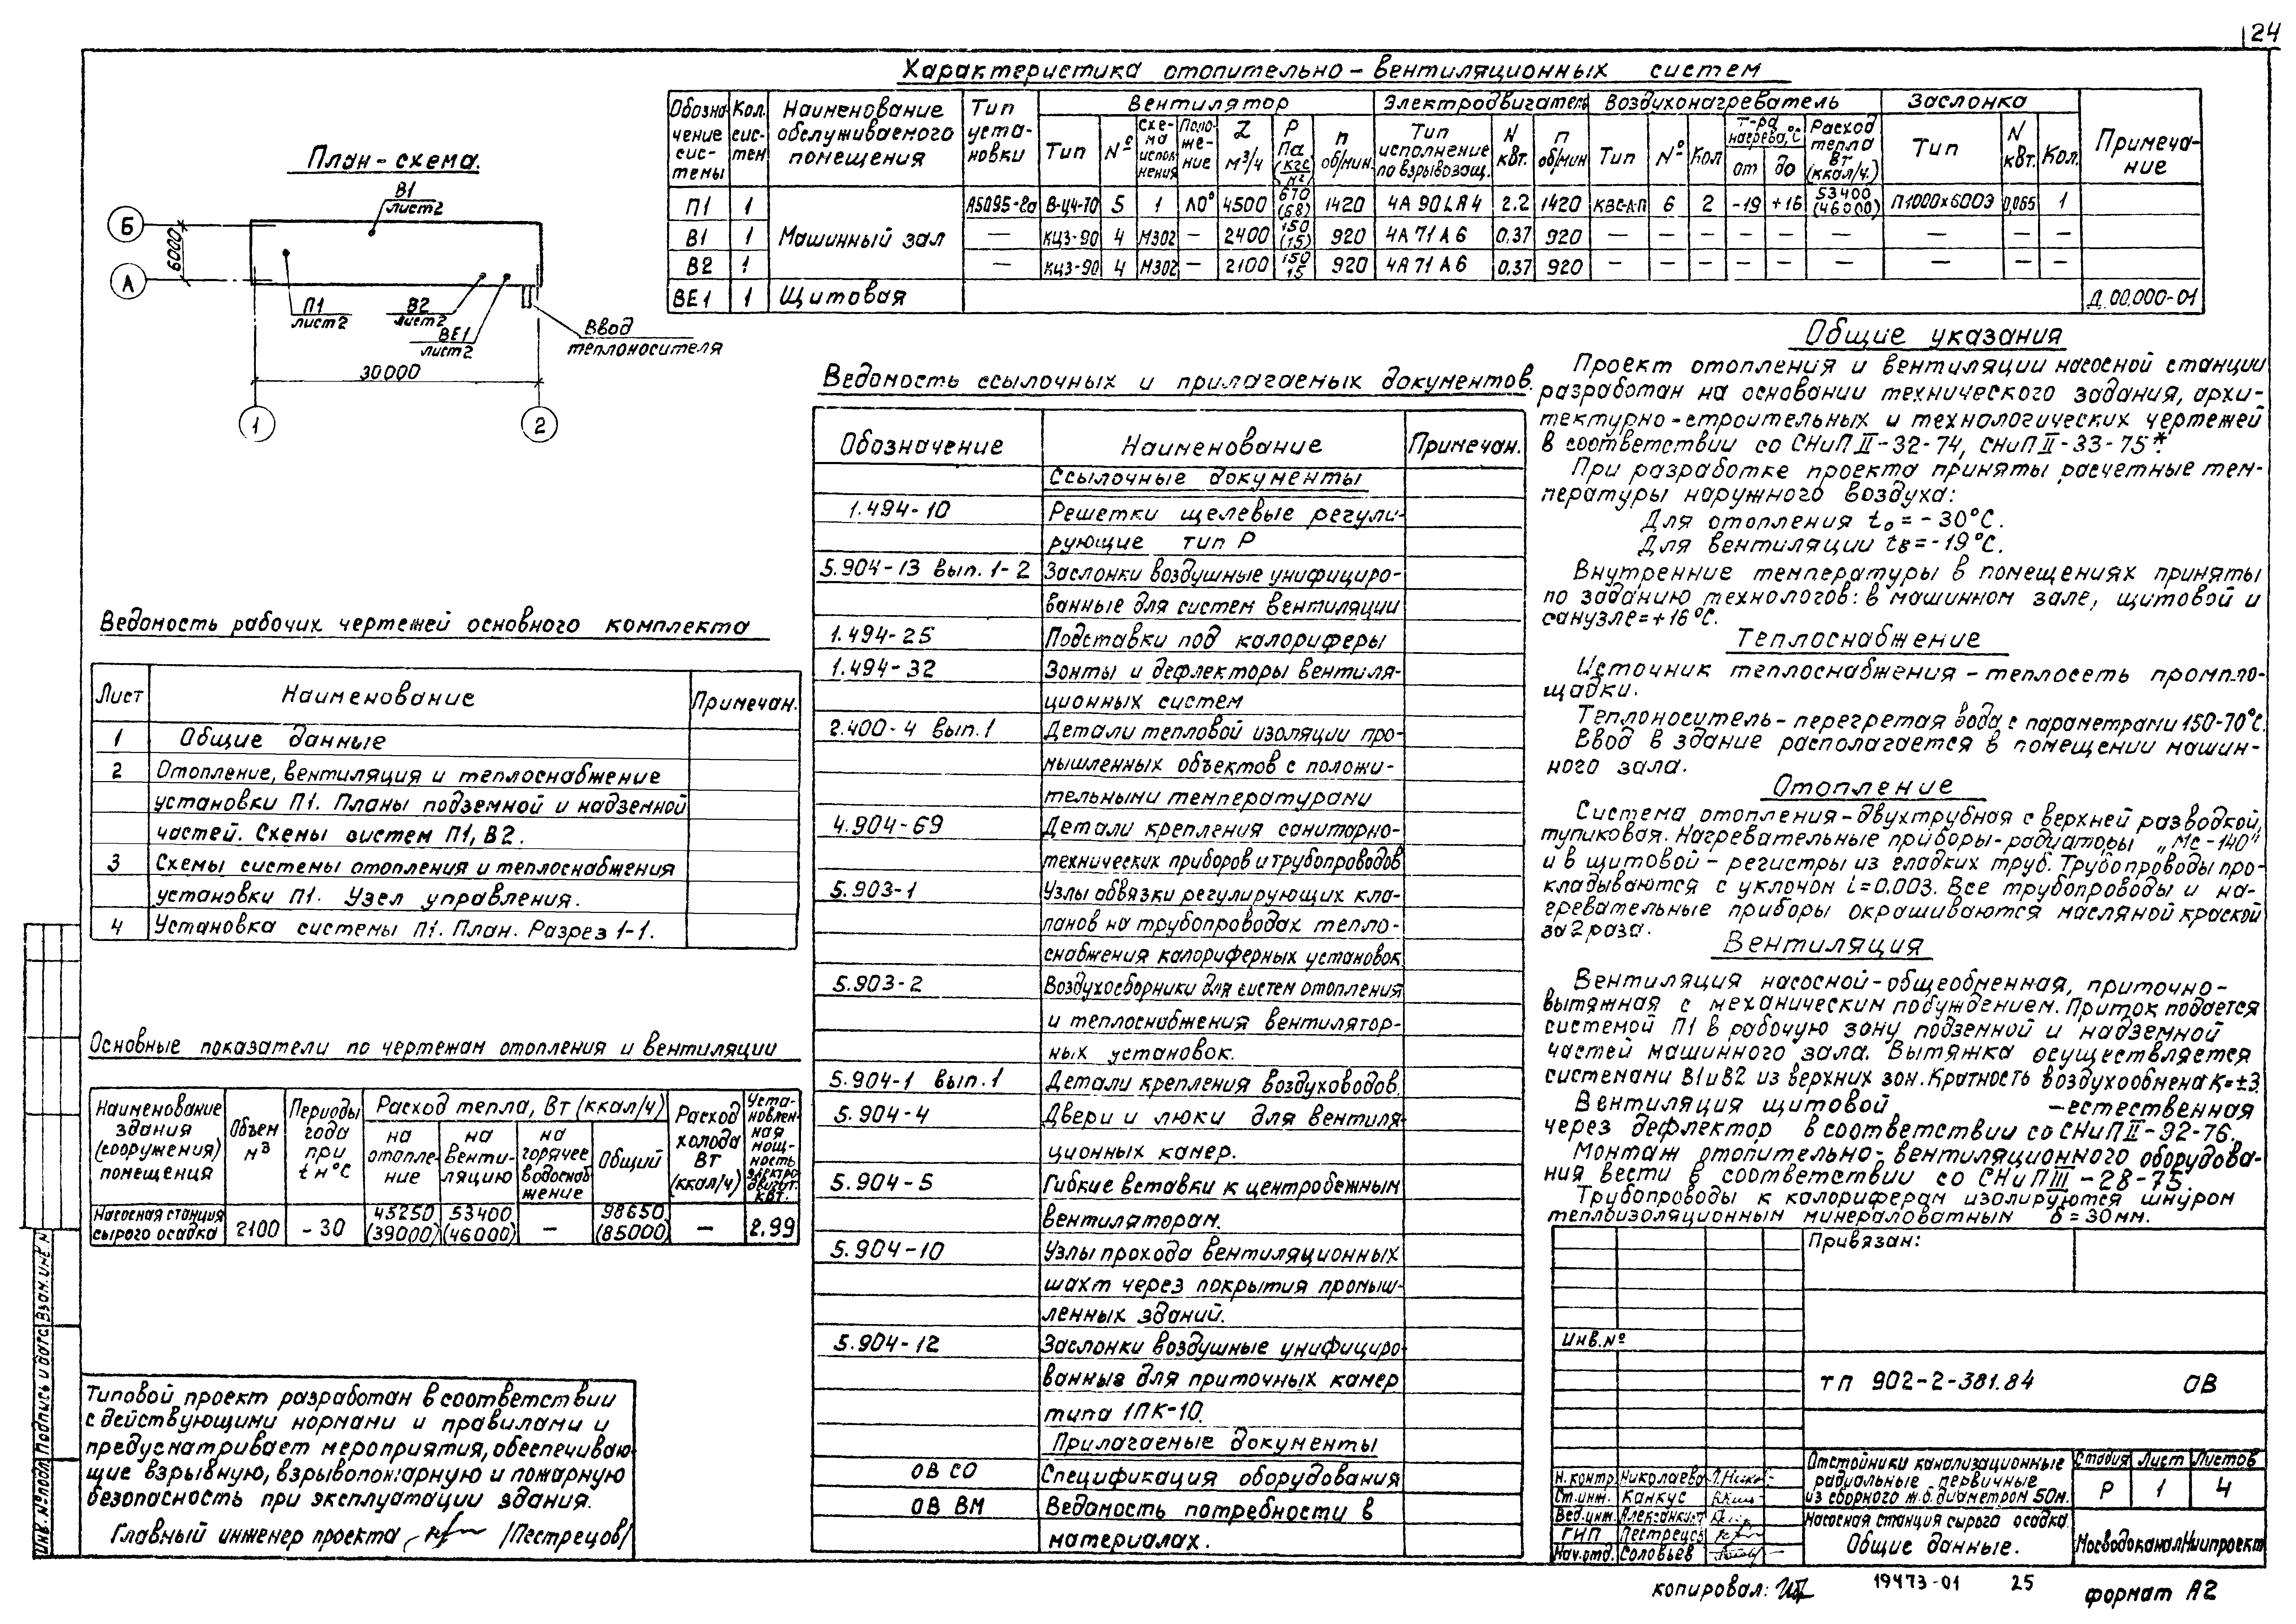 24
Характеристика отопительно-вентиляционных систем
Обозначение системы
Кол. систем
Наименование обслуживаемого помещения
Тип установки
Вентилятор
Электродвигатель
Воздухонагреватель
Заслонка
Примечание
Тип
№
Схема исполнения
Положение
L м³/ч
Р Па (кгс/м²)
n об/мин.
Тип исполнение по взрывозащ.
N квт.
n об/мин
Тип
№
Кол
т-ра нагрева, °С
от
до
Расход тепла Вт (ккал/ч.)
Тип
N квт.
Кол.
П1 1 Машинный зал А5095-2а В-Ц4-70 5 1 Л0° 4500 670 (68) 1420 4А90LА4 2.2 1420 КВС-А-П 6 2 -19 +16 53400 (46000) П1000х600Э 0,065 1
В1 1 — КЦ3-90 4 М302 — 2400 150 (15) 920 4А71А6 0.37 920 — — — — — — — — —
В2 1 — КЦ3-90 4 М302 — 2100 150 15 920 4А71А6 0,37 920 — — — — — — — — —
ВЕ1 1 Щитовая Д.00.000-01
План-схема.
Б
А
6000
В1
лист2
П1
лист2
В2
лист2
ВЕ1
лист2
Ввод
теплоносителя
30000
1
2
Ведомость рабочих чертежей основного комплекта
Лист Наименование Примечан.
1 Общие данные
2 Отопление, вентиляция и теплоснабжение
установки П1. Планы подземной и надземной
частей. Схемы систем П1, В2.
3 Схемы системы отопления и теплоснабжения
установки П1. Узел управления.
4 Установка системы П1. План. Разрез 1-1.
Основные показатели по чертежам отопления и вентиляции
Наименование здания (сооружения) помещения
Объем м³
Периоды года при tн°С
Расход тепла, Вт (ккал/ч)
на отопление
на вентиляцию
на горячее водоснабжение
Общий
Расход холода Вт (ккал/ч)
Установленная мощность электродвигат. квт.
Насосная станция сырого осадка 2100 -30 45250 (39000) 53400 (46000) — 98650 (85000) — 2.99
Типовой проект разработан в соответствии
с действующими нормами и правилами и
предусматривает мероприятия, обеспечиваю-
щие взрывную, взрывопожарную и пожарную
безопасность при эксплуатации здания.
Главный инженер проекта /Пестрецов/
Инв. № подл. Подпись и дата Взам. инв. №
Ведомость ссылочных и прилагаемых документов.
Обозначение Наименование Примечан.
Ссылочные документы
1.494-10 Решетки щелевые регули-
рующие тип Р
5.904-13 вып. 1-2 Заслонки воздушные унифициро-
ванные для систем вентиляции
1.494-25 Подставки под калориферы
1.494-32 Зонты и дефлекторы вентиля-
ционных систем
2.400-4 вып.1 Детали тепловой изоляции про-
мышленных объектов с положи-
тельными температурами
4.904-69 Детали крепления санитарно-
технических приборов и трубопроводов
5.903-1 Узлы обвязки регулирующих кла-
панов на трубопроводах тепло-
снабжения калориферных установок
5.903-2 Воздухосборники для систем отопления
и теплоснабжения вентилятор-
ных установок.
5.904-1 вып.1 Детали крепления воздуховодов.
5.904-4 Двери и люки для вентиля-
ционных камер.
5.904-5 Гибкие вставки к центробежным
вентиляторам.
5.904-10 Узлы прохода вентиляционных
шахт через покрытия промыш-
ленных зданий.
5.904-12 Заслонки воздушные унифициро-
ванные для приточных камер
типа 1ПК-10.
Прилагаемые документы
ОВ СО Спецификация оборудования
ОВ ВМ Ведомость потребности в
материалах.
Общие указания
Проект отопления и вентиляции насосной станции
разработан на основании технического задания, архи-
тектурно-строительных и технологических чертежей
в соответствии со СНиП II-32-74, СНиП II-33-75*.
При разработке проекта приняты расчетные тем-
пературы наружного воздуха:
Для отопления tо = -30°С.
Для вентиляции tв = -19°С.
Внутренние температуры в помещениях приняты
по заданию технологов: в машинном зале, щитовой и
санузле = +16°С.
Теплоснабжение
Источник теплоснабжения - теплосеть промпло-
щадки.
Теплоноситель - перегретая вода с параметрами 150-70°С.
Ввод в здание располагается в помещении машин-
ного зала.
Отопление
Система отопления - двухтрубная с верхней разводкой,
тупиковая. Нагревательные приборы - радиаторы „Мс-140"
и в щитовой - регистры из гладких труб. Трубопроводы про-
кладываются с уклоном i=0.003. Все трубопроводы и на-
гревательные приборы окрашиваются масляной краской
за 2 раза.
Вентиляция
Вентиляция насосной - общеобменная, приточно-
вытяжная с механическим побуждением. Приток подается
системой П1 в рабочую зону подземной и надземной
частей машинного зала. Вытяжка осуществляется
системами В1 и В2 из верхних зон. Кратность воздухообмена К=±3.
Вентиляция щитовой - естественная
через дефлектор в соответствии со СНиП II-92-76.
Монтаж отопительно-вентиляционного оборудова-
ния вести в соответствии со СНиП III-28-75.
Трубопроводы к калориферам изолируются шнуром
теплоизоляционным минераловатным δ = 30 мм.
Привязан:
Инв.№
тп 902-2-381.84 ОВ
Н.контр. Николаева
Ст.инж. Канкус
Вед.инж.
ГНП Пестрецов
Нач.отд. Соловьев
Отстойники канализационные
радиальные первичные
из сборного ж.б. диаметром 50м.
Стадия Лист Листов
Р 1 4
Насосная станция сырого осадка
Общие данные.
МосводоканалНиипроект
копировал:
19473-01 25
формат А2